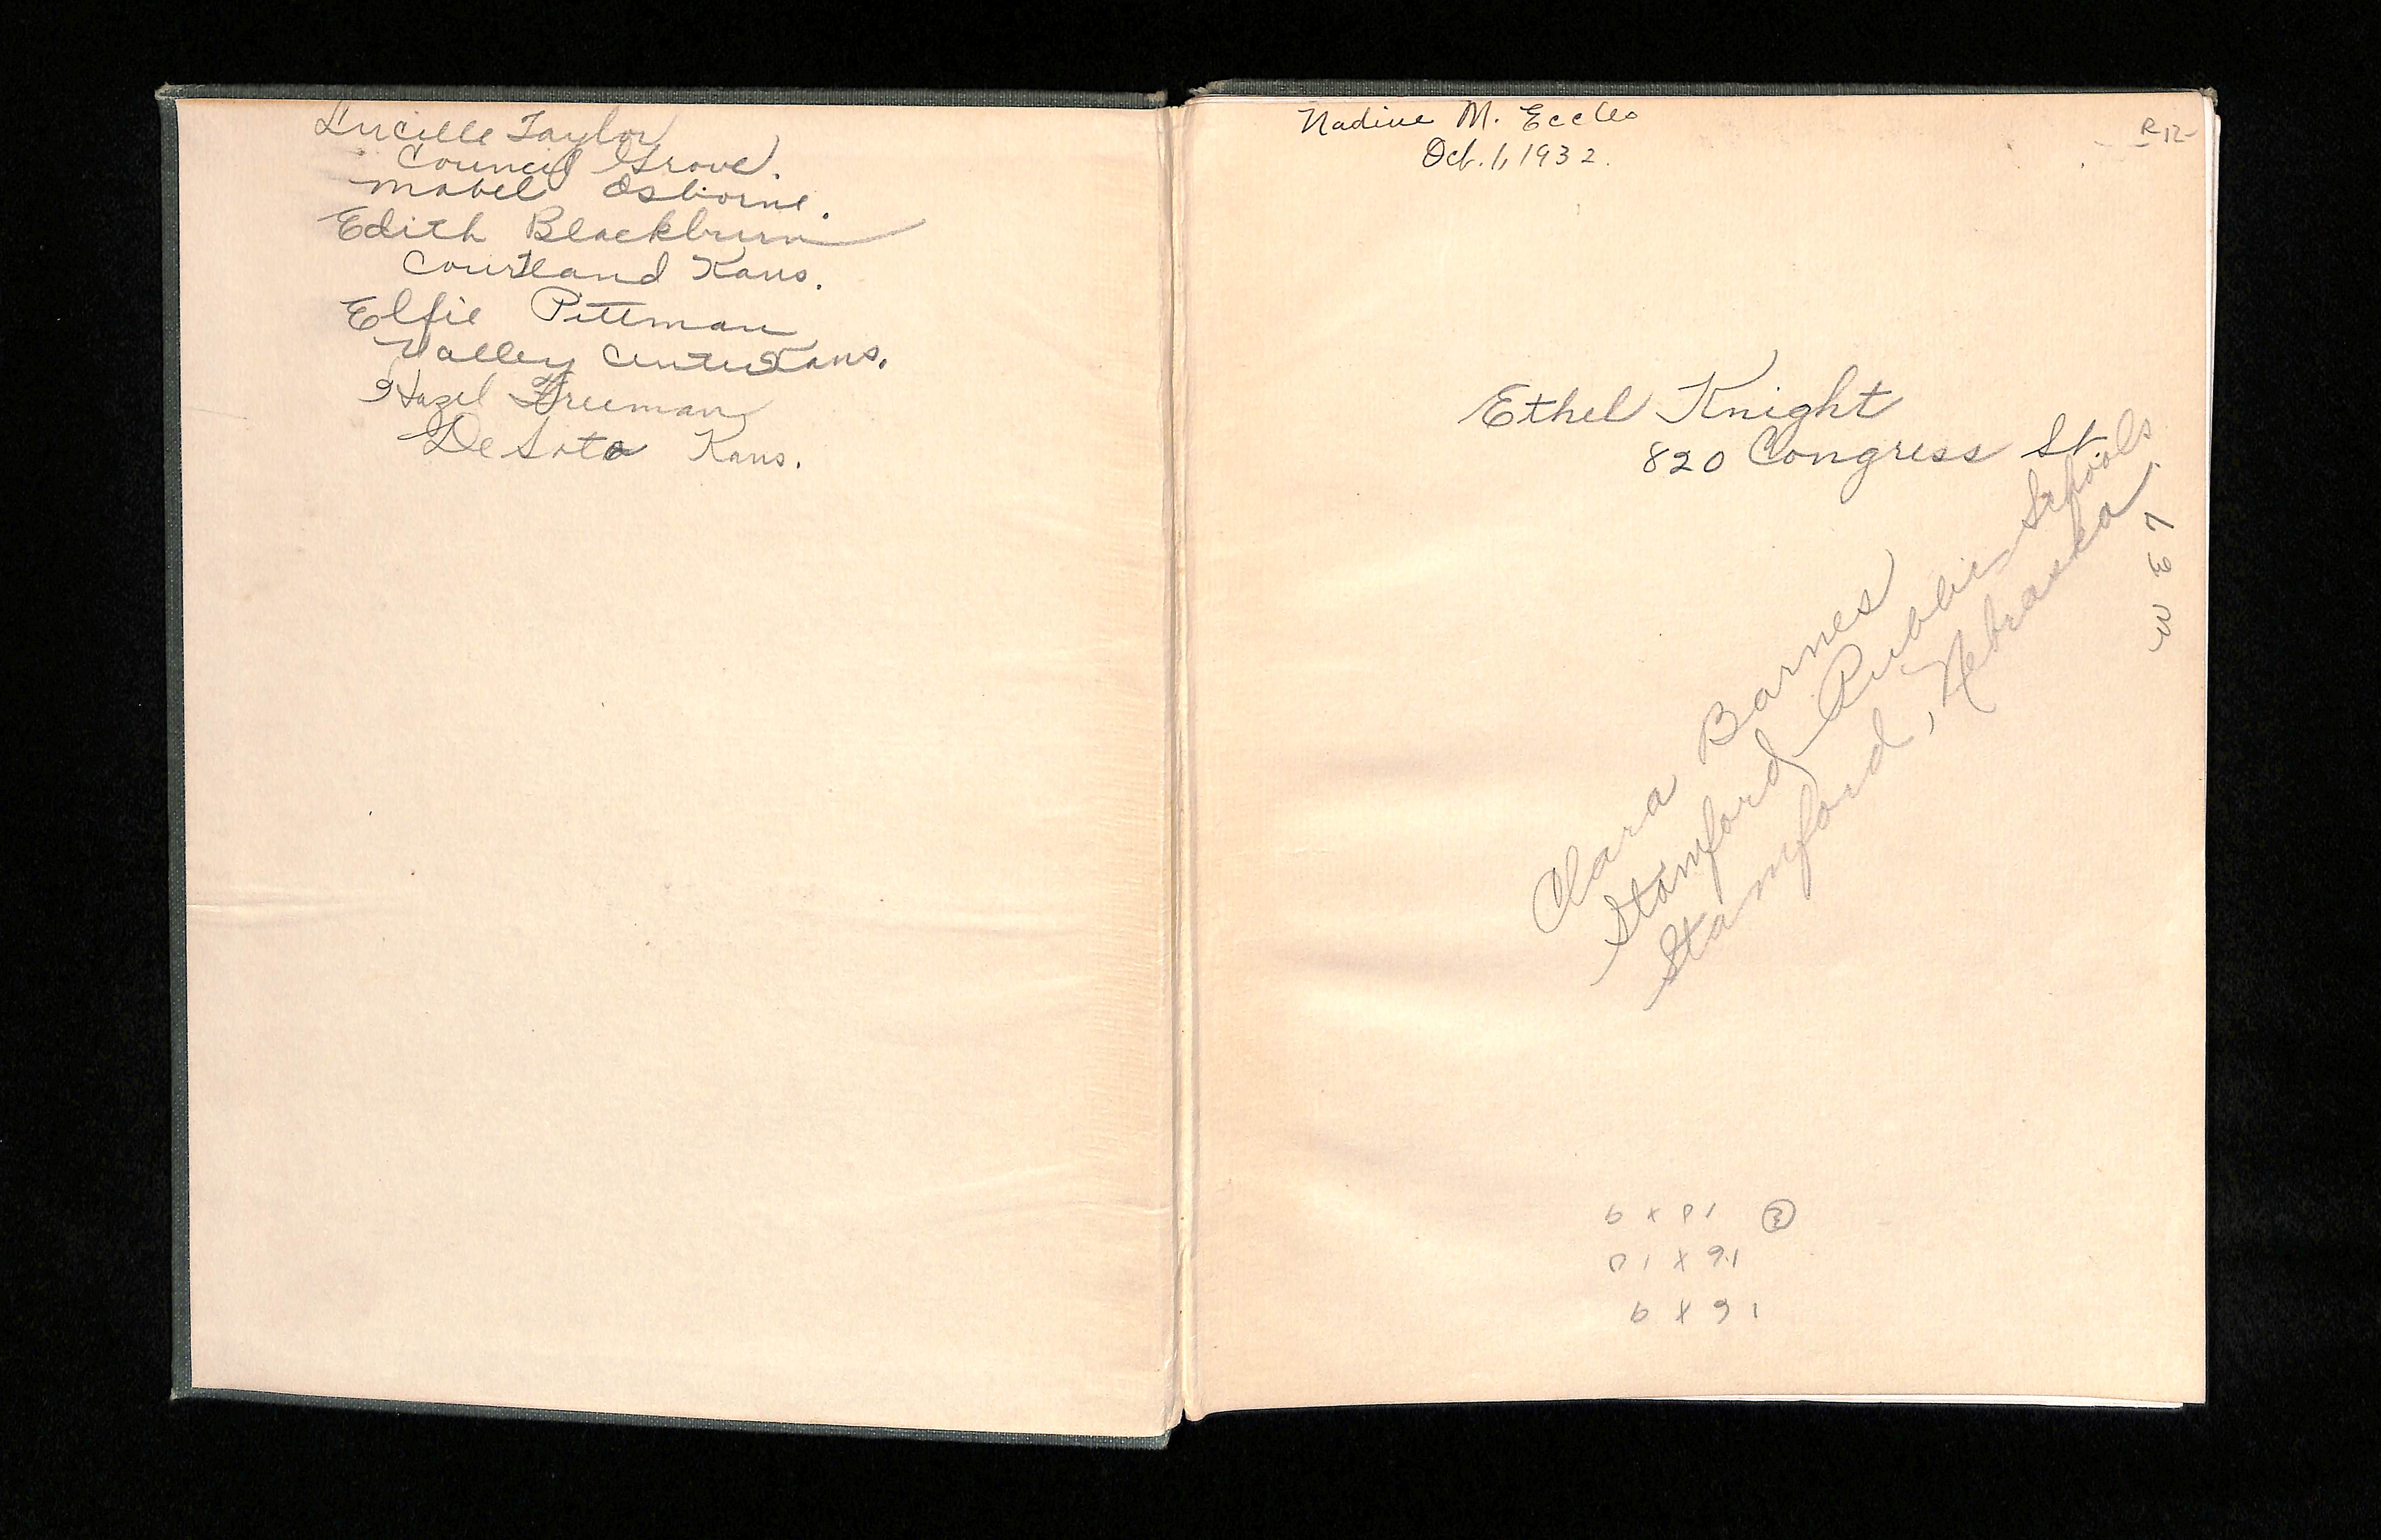 Lucille Taylor
Council Grove.
Mabel Osborne.
Edith Blackburn
Courtland Kans.
Elfie Pittman
Valley Center Kans.
Hazel Freeman
De Soto Kans.
Nadine M. Eccles
Oct. 1, 1932.
Ethel Knight
820 Congress St.
Clara Barnes
Stamford Public Schools
Stamford, Nebraska.